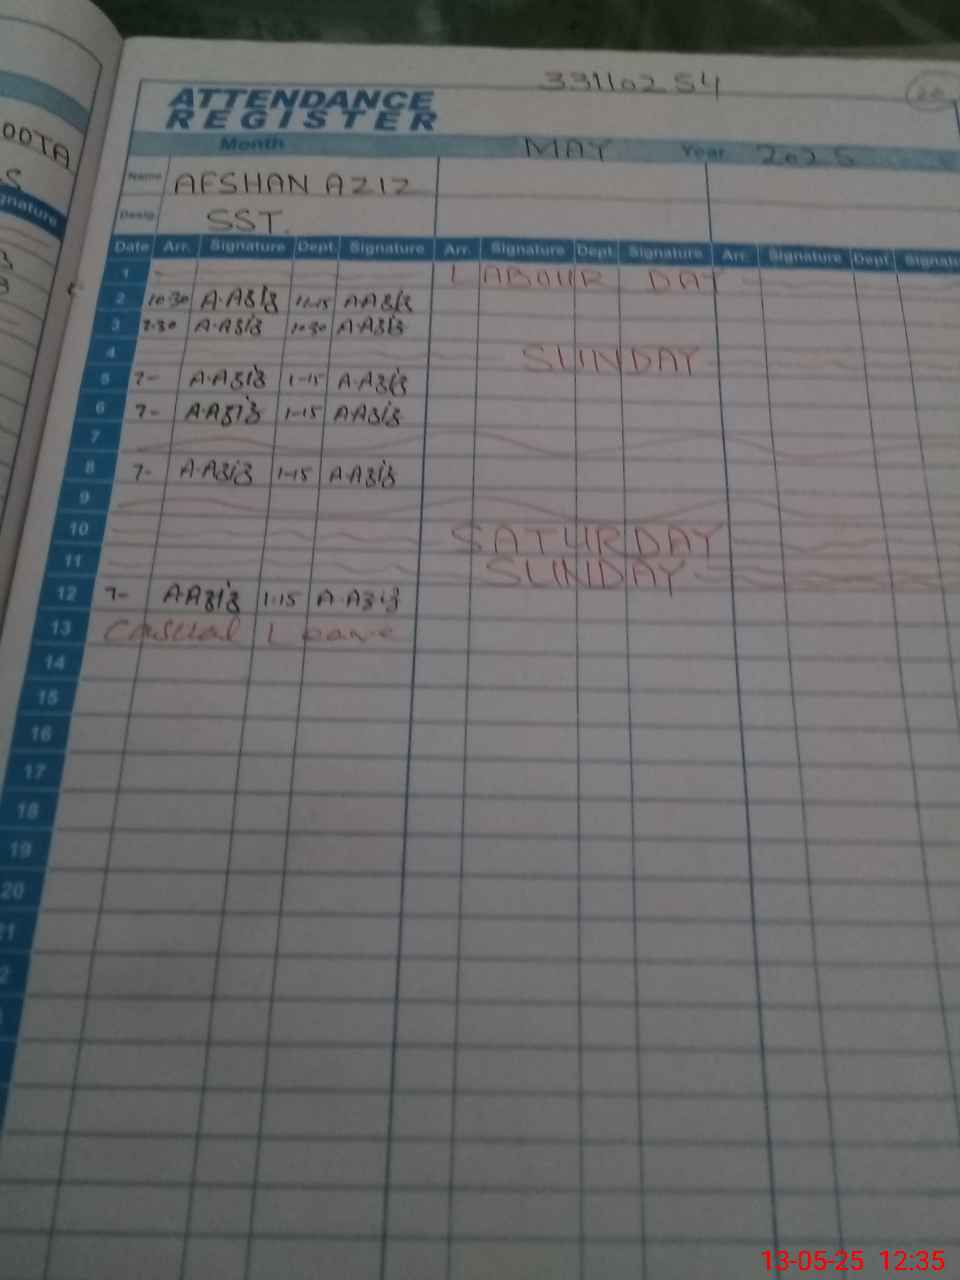 33110254
20
ATTENDANCE
REGISTER
Month MAY Year 2025
OOTA
Name AFSHAN AZIZ
Desig. SST.
gnature
Date Arr. Signature Dept. Signature Arr. Signature Dept. Signature Arr. Signature Dept. Signatu
1 LABOUR DAY
2 10:30 A.Aziz 11:15 A.Aziz
3 7.30 A.Aziz 10:30 A.Aziz
4 SUNDAY
5 7- A.Aziz 1-15 A.Aziz
6 7- A.Aziz 1-15 A.Aziz
7
8 7- A.Aziz 1-15 A.Aziz
9
10 SATURDAY
11 SUNDAY
12 7- A.Aziz 1.15 A.Aziz
13 Casual Leave
14
15
16
17
18
19
20
13-05-25 12:35